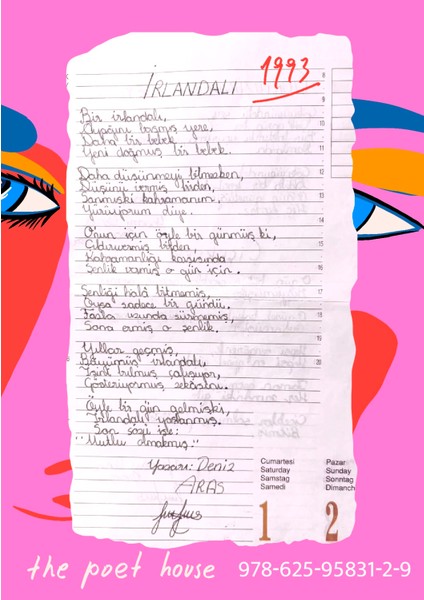 1993
İRLANDALI
Bir irlandalı,
Ayağını basmış yere,
Daha bir bebek
Yeni doğmuş bir bebek.
Daha düşünmeyi bilmeyken,
Düşünü vermiş birden,
Sanmışki kahramanım,
Yürüyorum diye.
O'nun için öyle bir günmüş ki,
Çıldırıvermiş birden,
Kahramanlığı karşısında
Şenlik varmış o gün için.
Şenliği hâlâ bitmemiş,
Oysa sadece bir gündü.
Fazla uzunda sürmemiş,
Sona ermiş o şenlik.
Yıllar geçmiş,
Büyümüş irlandalı,
İşini bulmuş çalışıyor,
Gösteriyormuş zekasını.
Öyle bir gün gelmişki,
İrlandalı yaşlanmış.
Son sözü ise:
"Mutlu olmakmış."
Yazarı: Deniz
ARAS
Cumartesi
Saturday
Samstag
Samedi
1
Pazar
Sunday
Sonntag
Dimanch
2
8
9
10
11
12
13
14
15
16
17
18
19
20
the poet house
978-625-95831-2-9